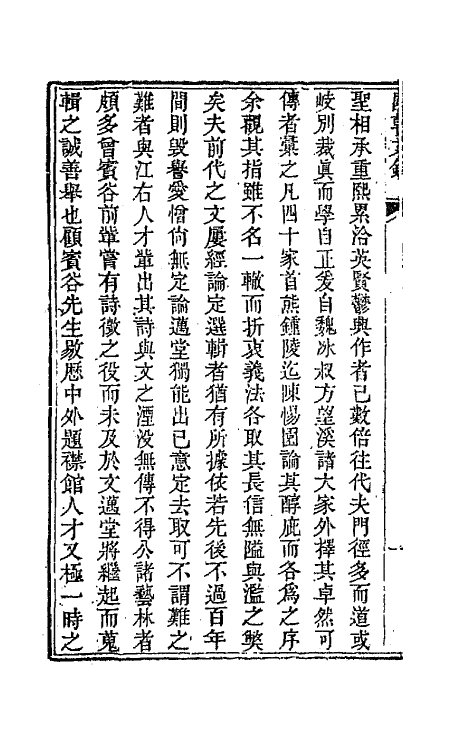 聖相承重熙累洽英賢鬱興作者已數倍往代夫門徑多而道或
岐別裁眞而學自正爰自魏冰叔方望溪諸大家外擇其卓然可
傳者彙之凡四十家首熊鍾陵迄陳惕園論其醇庇而各爲之序
余觀其指雖不名一轍而折衷義法各取其長信無隘與濫之獘
矣夫前代之文屢經論定選輯者猶有所據依若先後不過百年
間則毀譽愛憎尙無定論邁堂獨能出己意定去取可不謂難之
難者與江右人才輩出其詩與文之湮沒無傳不得公諸藝林者
頗多曾賓谷前輩嘗有詩徵之役而未及於文邁堂將繼起而蒐
輯之誠善舉也顧賓谷先生敭歴中外題襟館人才又極一時之